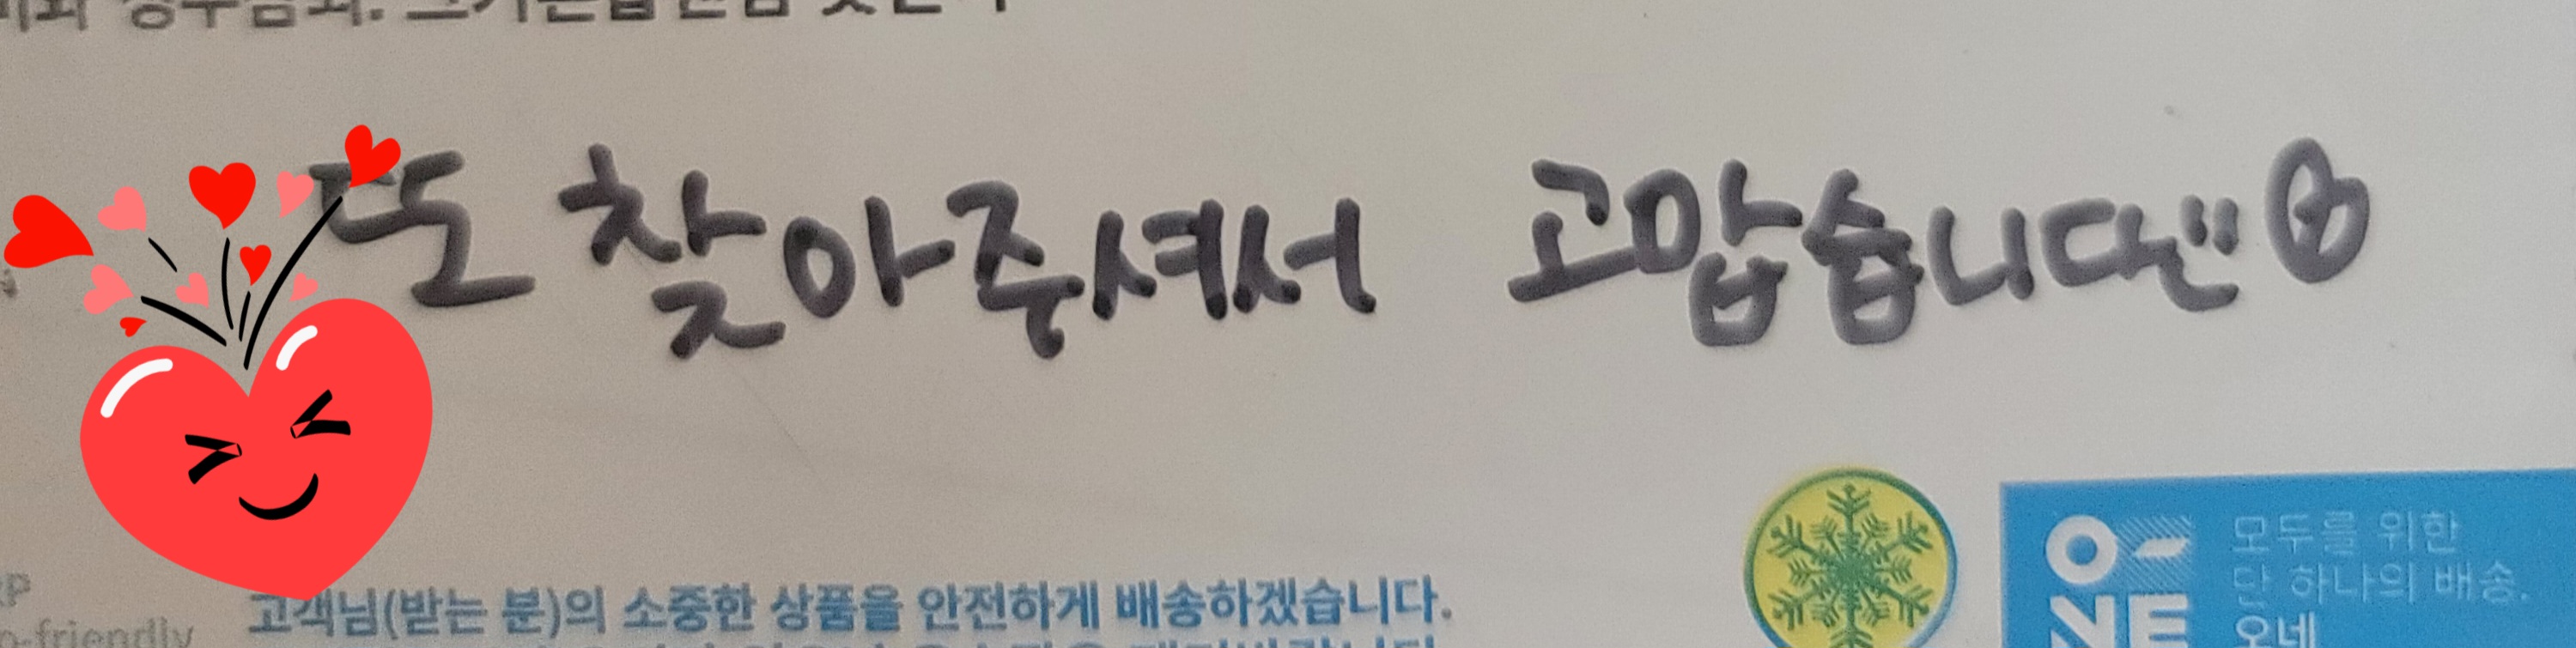 또 찾아주셔서 고맙습니다
고객님(받는 분)의 소중한 상품을 안전하게 배송하겠습니다.
O-NE
모두를 위한
단 하나의 배송.
오네
-friendly